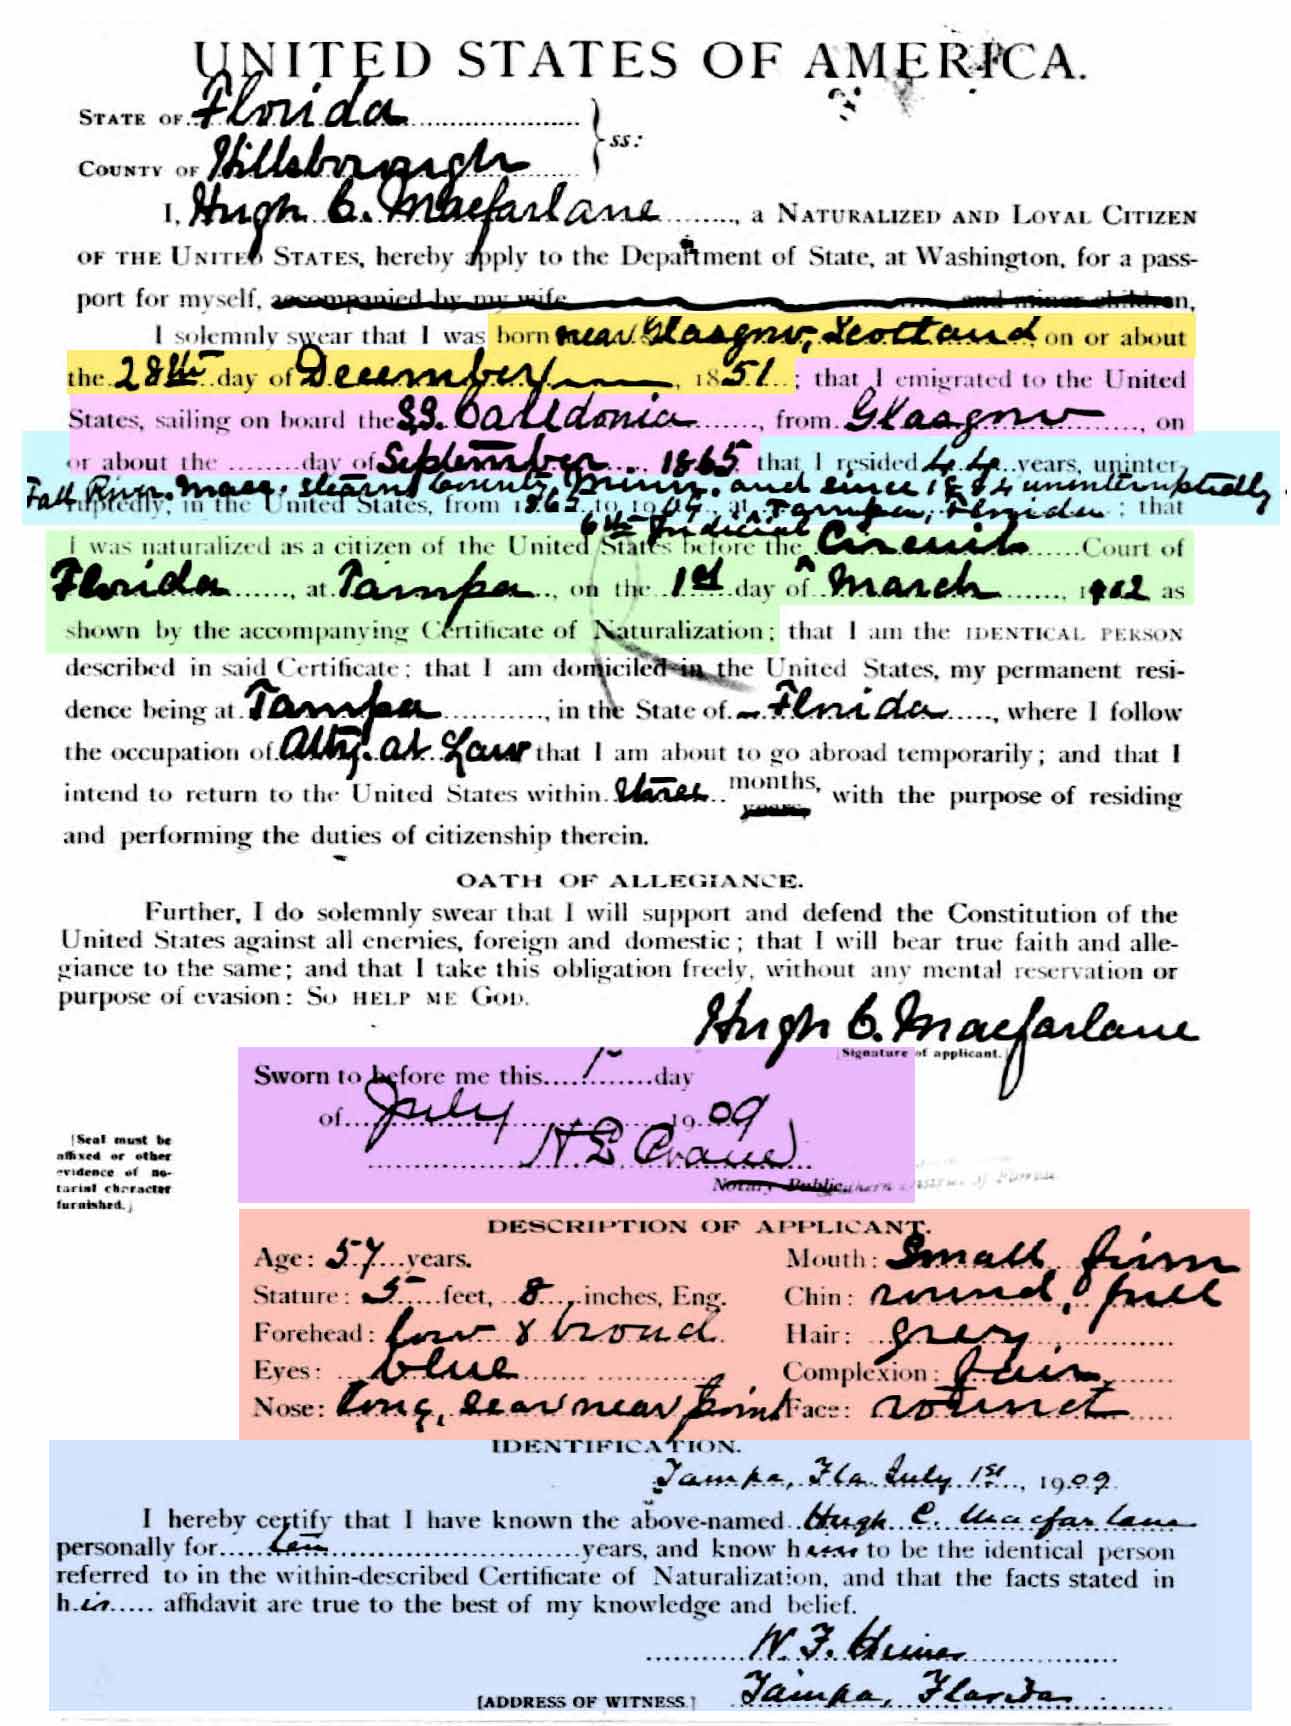 UNITED STATES OF AMERICA.
STATE OF Florida
COUNTY OF Hillsborough
ss:
I, Hugh C. Macfarlane, a NATURALIZED AND LOYAL CITIZEN
OF THE UNITED STATES, hereby apply to the Department of State, at Washington, for a pass-
port for myself, accompanied by my wife and minor children,
I solemnly swear that I was born near Glasgow, Scotland, on or about
the 28th day of December, 1851; that I emigrated to the United
States, sailing on board the S.S. Caledonia, from Glasgow, on
or about the day of September 1865 that I resided 44 years, uninter-
Fall River. Mass. Stearns County, Minn. and since 1884 uninterruptedly
ruptedly, in the United States, from 1865 to 1909, at Tampa, Florida; that
6th Judicial
I was naturalized as a citizen of the United States before the Circuit Court of
Florida, at Tampa, on the 1st day of March, 1902 as
shown by the accompanying Certificate of Naturalization; that I am the IDENTICAL PERSON
described in said Certificate; that I am domiciled in the United States, my permanent resi-
dence being at Tampa, in the State of Florida, where I follow
the occupation of Atty. at Law that I am about to go abroad temporarily; and that I
intend to return to the United States within three months, years, with the purpose of residing
and performing the duties of citizenship therein.
OATH OF ALLEGIANCE.
Further, I do solemnly swear that I will support and defend the Constitution of the
United States against all enemies, foreign and domestic; that I will bear true faith and alle-
giance to the same; and that I take this obligation freely, without any mental reservation or
purpose of evasion: SO HELP ME GOD.
Hugh C. Macfarlane
[Signature of applicant.]
Sworn to before me this 1st day
of July 1909
H E Crane
Notary Public
[Seal must be
affixed or other
evidence of no-
tarial character
furnished.]
DESCRIPTION OF APPLICANT.
Age: 57 years. Mouth: Small firm
Stature: 5 feet, 8 inches, Eng. Chin: round, full
Forehead: low & broad Hair: grey
Eyes: blue Complexion: fair
Nose: long, scar near point Face: round
IDENTIFICATION.
Tampa, Fla. July 1st, 1909
I hereby certify that I have known the above-named Hugh C. Macfarlane
personally for ten years, and know him to be the identical person
referred to in the within-described Certificate of Naturalization, and that the facts stated in
his affidavit are true to the best of my knowledge and belief.
W. F. Himes
[ADDRESS OF WITNESS.] Tampa, Florida